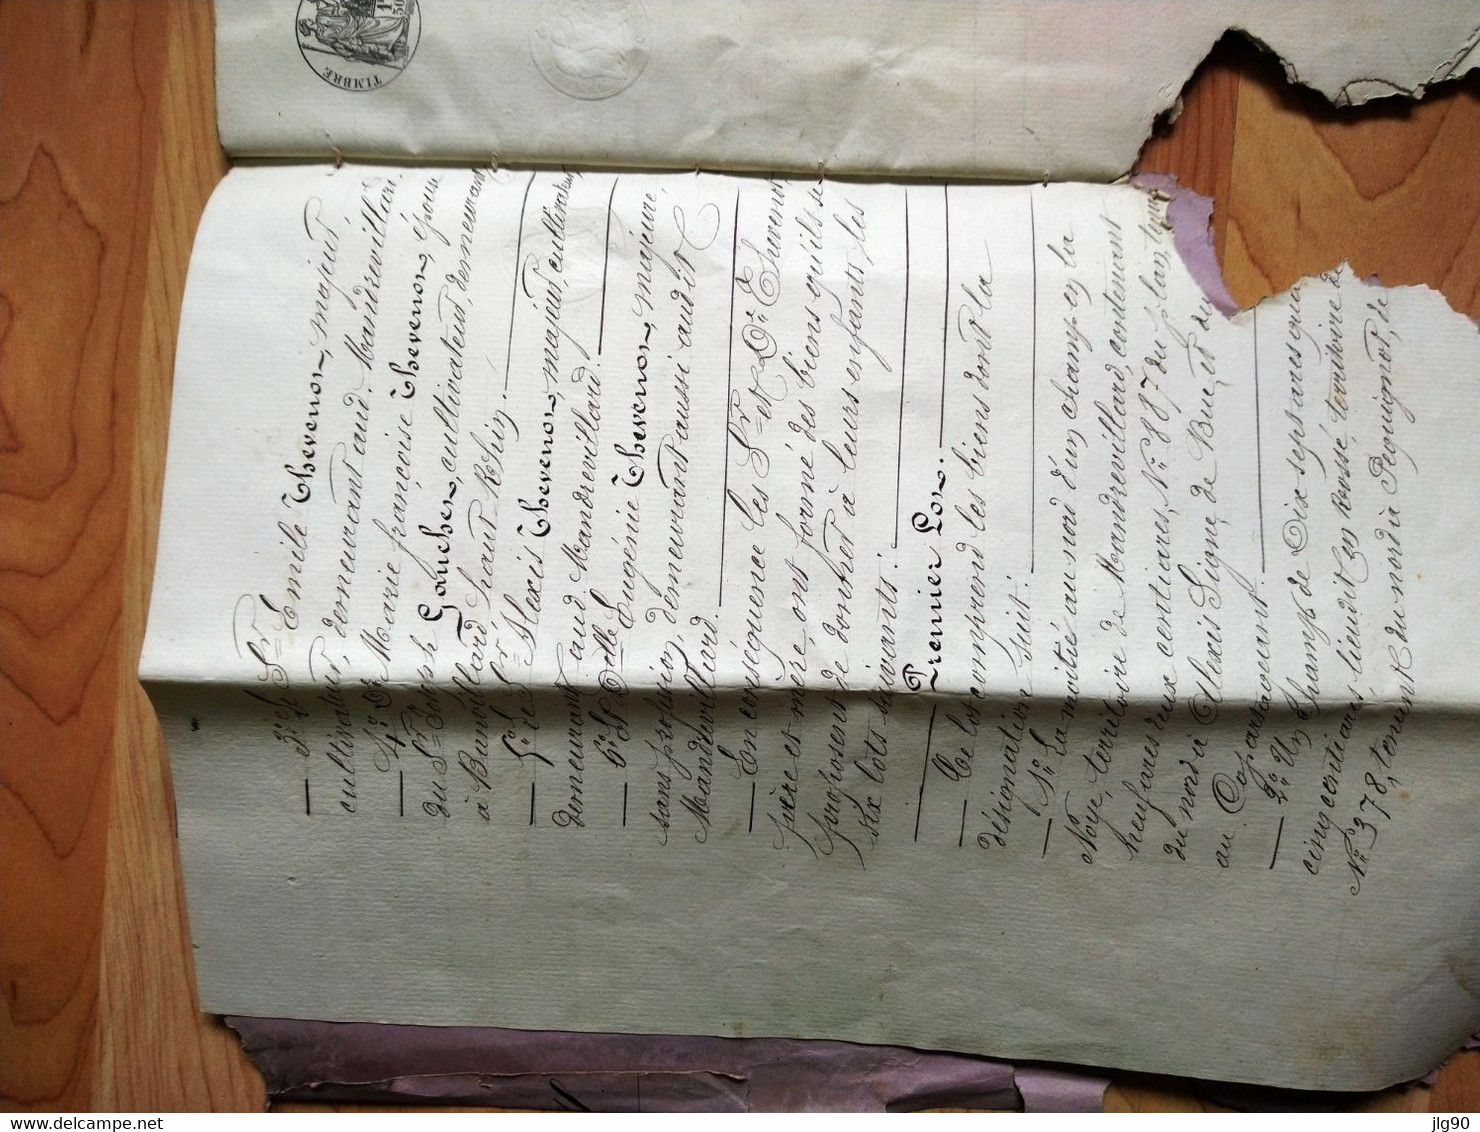 TIMBRE
— 3° Le Sr Emile Thevenot, majeur,
cultivateur, demeurant aud. Mandrevillard.
— 4° De Marie françoise Thevenot, épouse
du Sr Joseph Gaucher, cultivateur, demeurant
à Banvillard, haut-Rhin. —
— 5° le Sr Alexis Thevenot, majeur, cultivateur,
demeurant aud. Mandrevillard. —
— 6° Et Delle Eugénie Thevenot, majeure,
sans profession, demeurant aussi audit
Mandrevillard. —
— En conséquence les Sr et De Thevenot,
père et mère ont formé des biens qu'ils se
proposent de donner à leurs enfants les
six lots suivants: —
— Premier Lot. —
— Ce lot comprend les biens dont la
désignation suit: —
— 1° La moitié au nord d'un champ en la
Noye, territoire de Mandrevillard, contenant
neuf ares deux centiares, N° 887 du plan,
du nord à Alexis Signe, de Buc, et du
au Copartageant. —
— 2° Un Champ de Dix sept ares
cinq centiares lieudit en territoire de
N° 378, tenant du nord à Pequignot, le
delcampe.net
jlg90